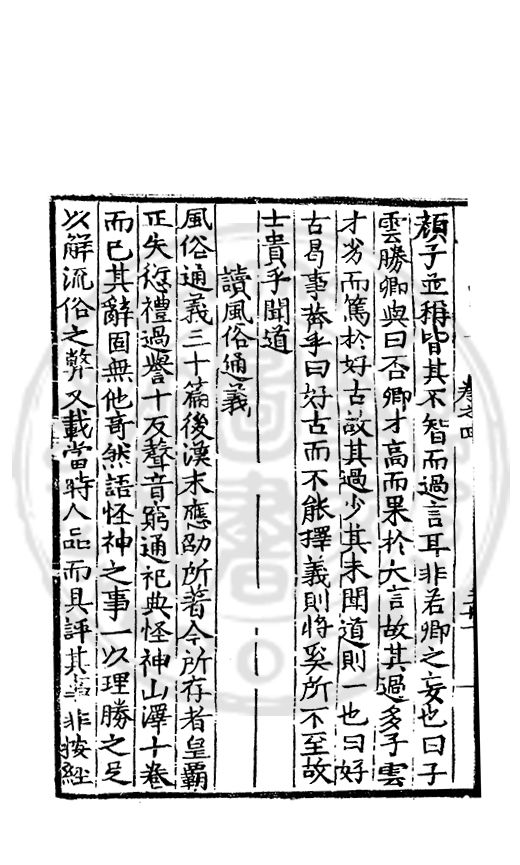 顏子並稱皆其不智而過言耳非若卿之妄也曰子
雲勝卿與曰否卿才高而果於大言故其過多子雲
才劣而篤於好古故其過少其未聞道則一也曰好
古曷事莽乎曰好古而不能擇義則將奚所不至故
士貴乎聞道
讀風俗通義
風俗通義三十篇後漢末應劭所著今所存者皇霸
正失愆禮過譽十反聲音窮通祀典怪神山澤十卷
而已其辭固無他奇然語怪神之事一以理勝之足
以解流俗之弊又載當時人品而具評其非按經
卷之四